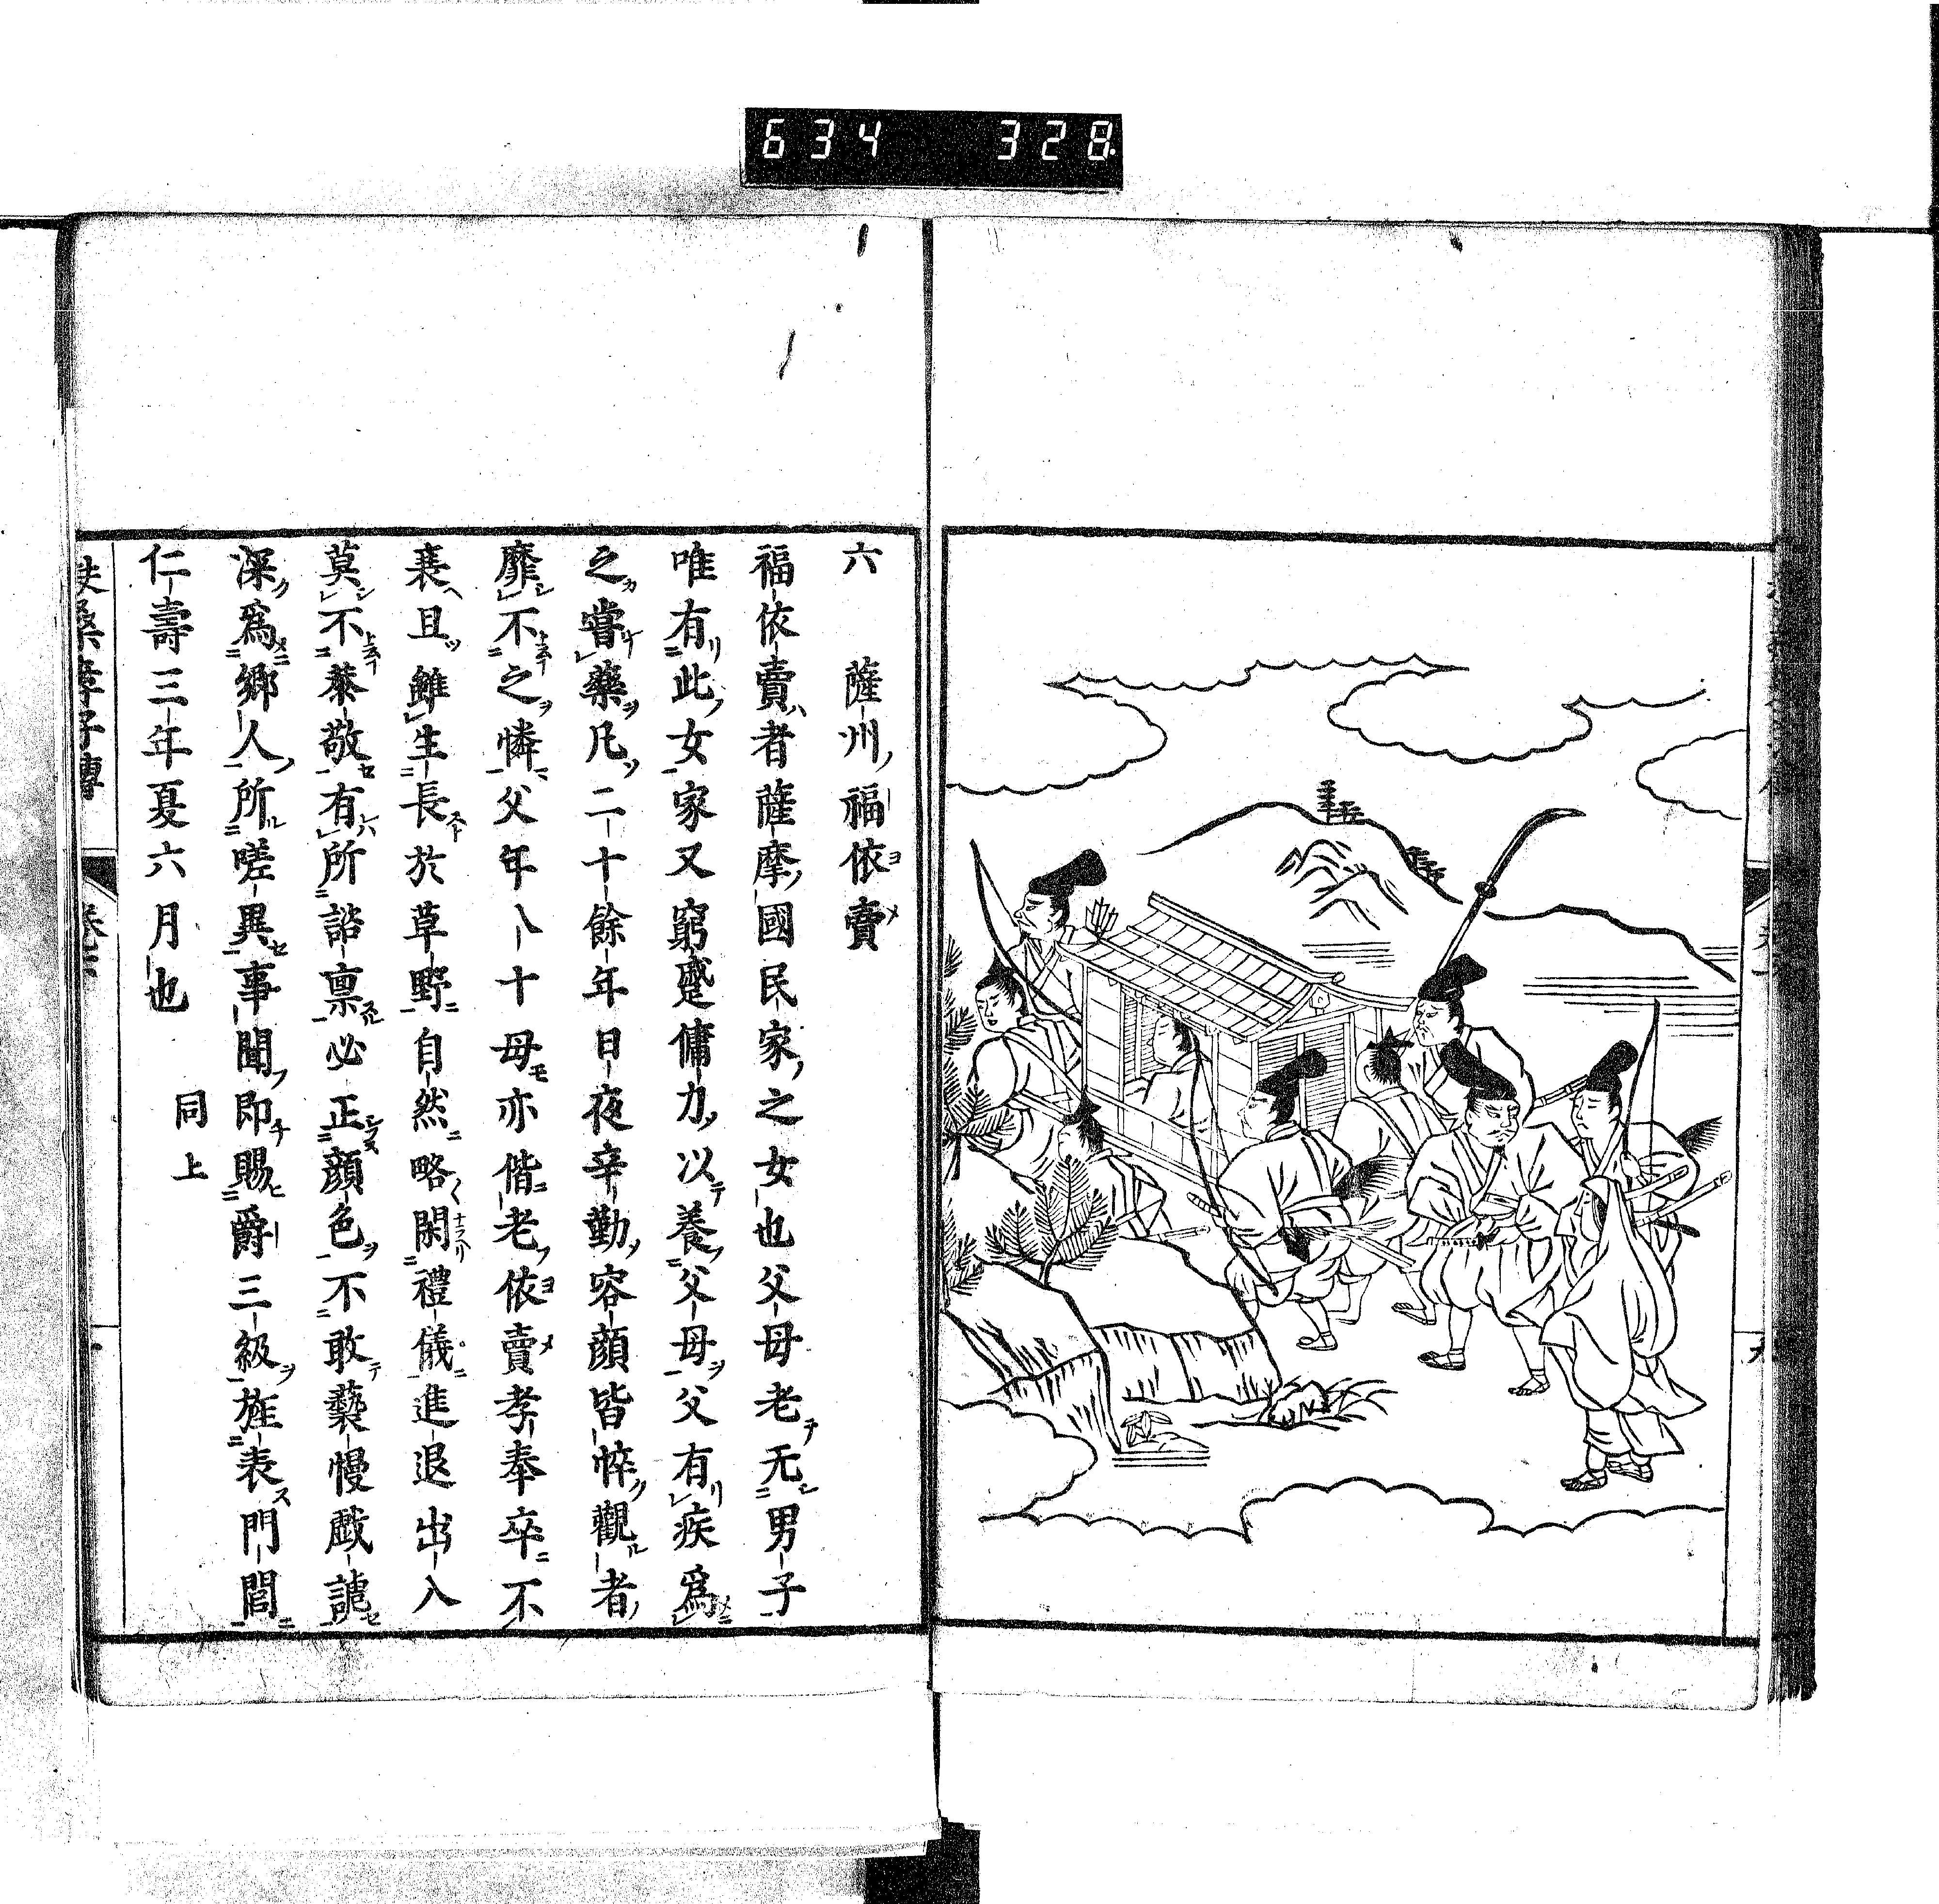 634 328
六 薩州福依賣
福依賣者薩摩國民家之女也父母老无男子
唯有此女家又窮蹙傭力以養父母父有疾爲
之嘗藥凡二十餘年日夜辛勤容顔皆悴觀者
靡不之憐父年八十母亦偕老依賣孝奉卒不
衰且雖生長於草野自然略閑禮儀進退出入
莫不恭敬有所諮禀必正顔色不敢褻慢戯謔
深爲鄉人所嗟異事聞即賜爵三級旌表門閭
仁壽三年夏六月也 同上
扶桑孝子傳